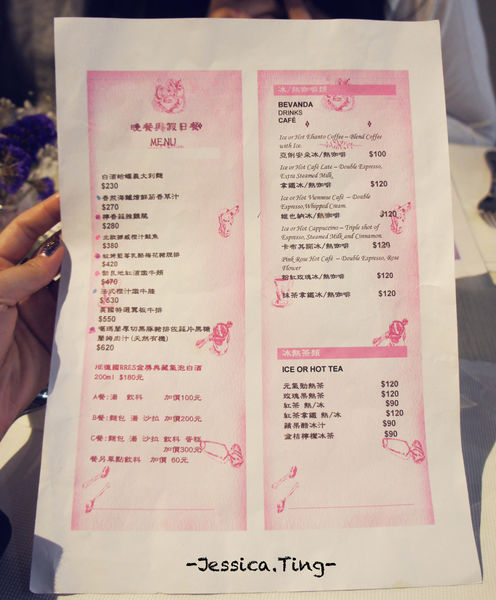 晚餐與假日餐
MENU
白酒蛤蠣義大利麵
$230
$270
檸香蒜辣雞腿
$280
北歐挪威橙汁鮭魚
$380
紅烤藍莓乳酪梅花豬踝排
$420
勃艮地紅酒燉牛頰
$470
法式橙汁燉牛膝
$630
英國特選翼板牛排
$550
噶瑪蘭厚切黑豚豬排佐蒜片黑糖
蘭姆肉汁 (天然有機)
$620
200ml $180元
A餐:湯 飲料 加價100元
B餐:麵包 湯 沙拉 加價200元
C餐:麵包 湯 沙拉 飲料 蛋糕
加價300元
餐另單點飲料 加價 60元
冰/熱咖啡類
BEVANDA
DRINKS
CAFÉ
Ice or Hot Ehanto Coffee – Blend Coffee
with Ice.
亞倒安朵冰/熱咖啡 $100
Ice or Hot Café Late – Double Espresso,
Extra Steamed Milk,
拿鐵冰/熱咖啡 $120
Ice or Hot Viennise Café – Double
Espresso,Whipped Cream.
維也納冰/熱咖啡 $120
Ice or Hot Cappuccino – Triple shot of
Espresso, Steamed Milk and Cinnamon.
卡布其諾冰/熱咖啡 $120
Pink Rose Hot Café – Double Espresso, Rose
Flower
粉紅玫瑰冰/熱咖啡 $120
抹茶拿鐵冰/熱咖啡 $120
冰熱茶類
ICE OR HOT TEA
元氣動熱茶 $120
玫瑰果熱茶 $120
紅茶 熱/冰 $90
紅茶拿鐵 熱/冰 $120
蘋果醋冰汁 $90
金桔檸檬冰茶 $90
-Jessica.Ting-